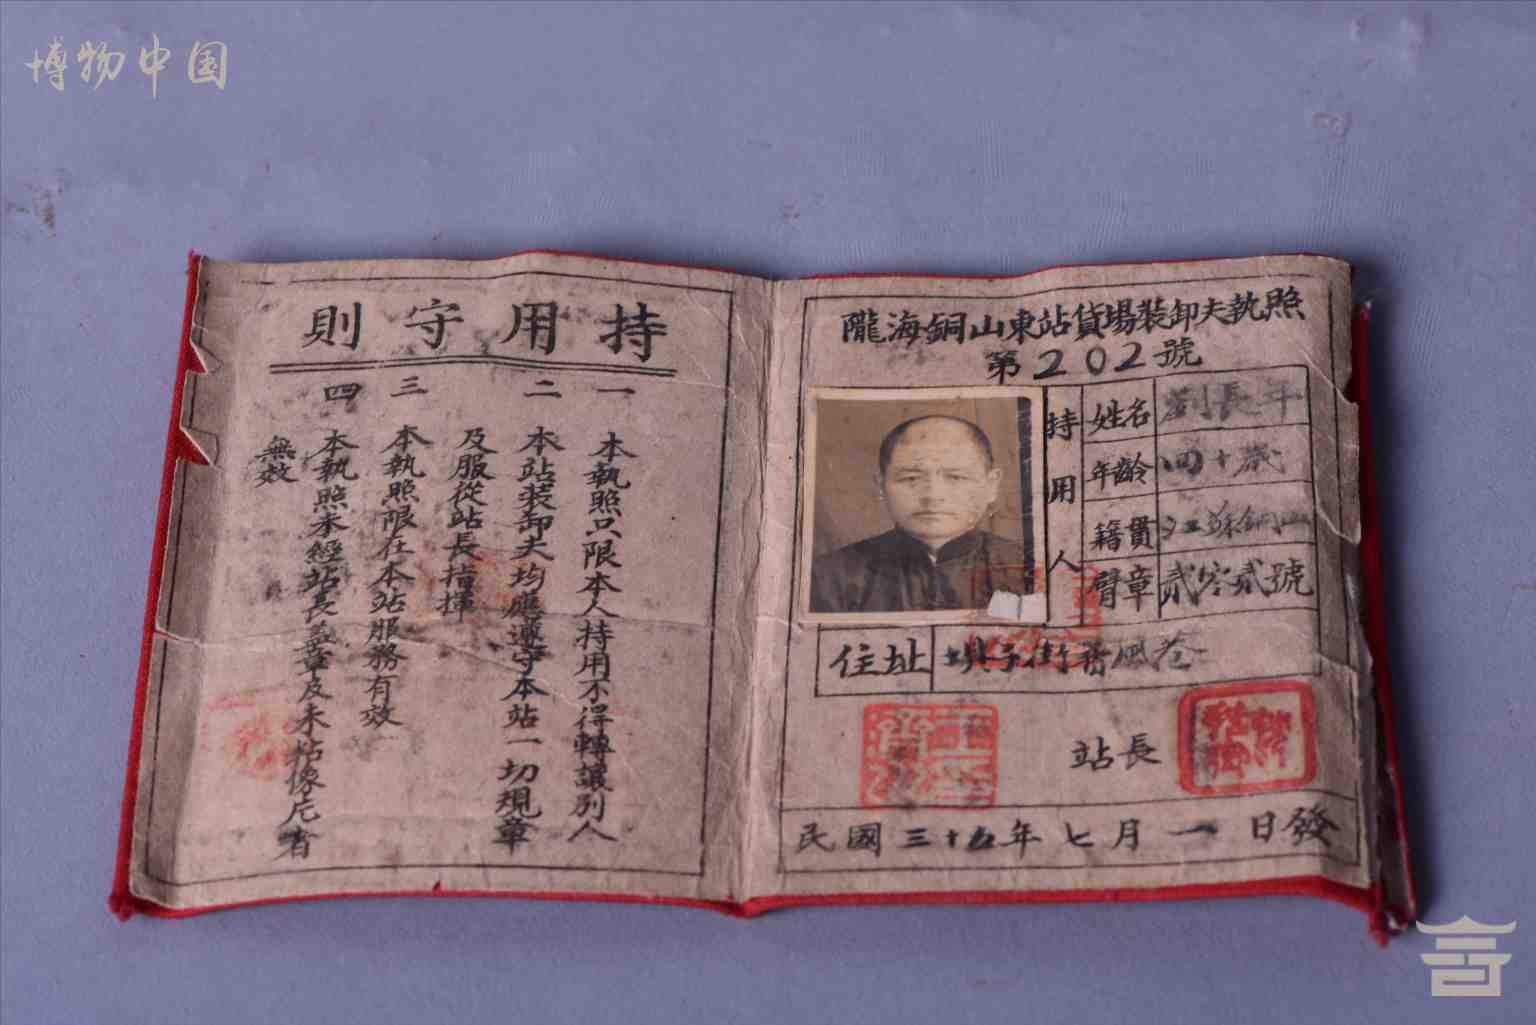 博物中国
隴海銅山東站貨場裝卸夫執照
第202號
持用人
姓名 劉長年
年齡 四十歲
籍貫 江蘇銅山
臂章 貳零貳號
住址 壩子街 巷
站長
民國三十五年七月一日發
持用守則
一 本執照只限本人持用不得轉讓別人
二 本站裝卸夫均應遵守本站一切規章
及服從站長指揮
三 本執照限在本站服務有效
四 本執照未經站長蓋章及未粘像片者
無效